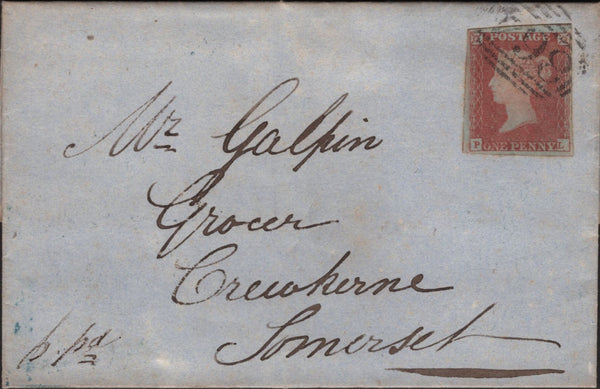 POSTAGE
98
P ONE PENNY L
Mr. Galpin
Grocer
Crewkerne
Somerset
p. pd